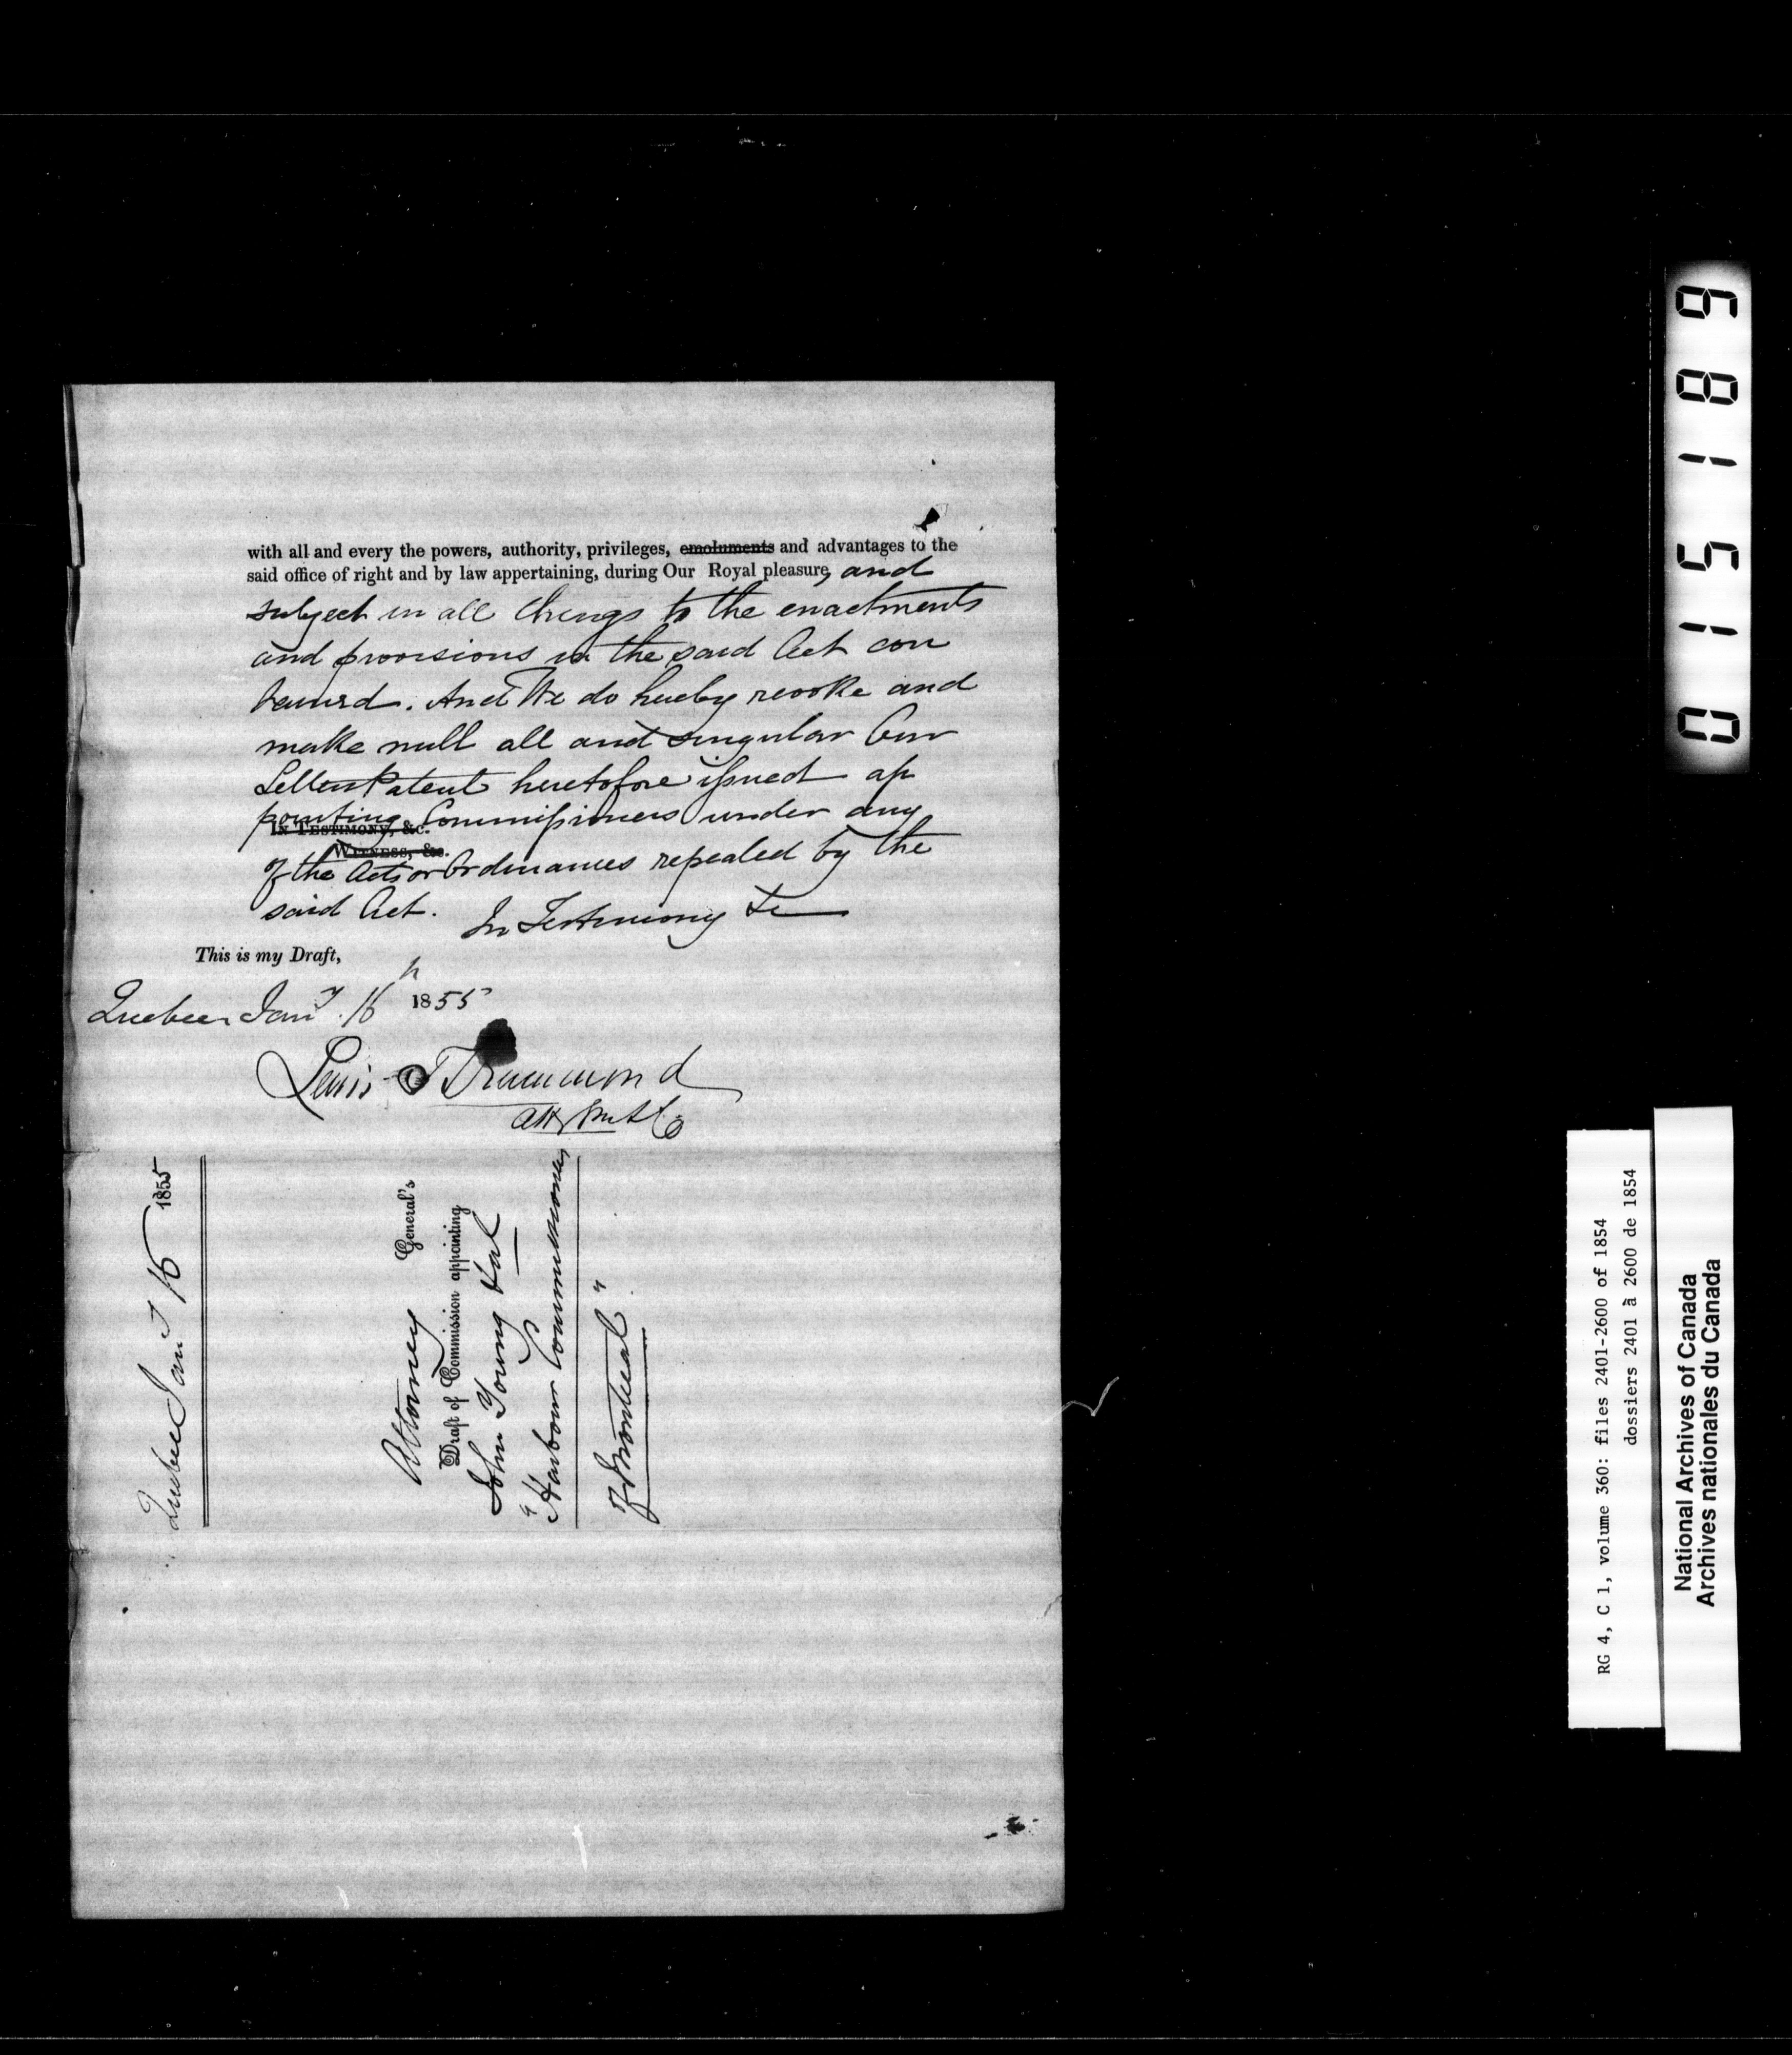 with all and every the powers, authority, privileges, emoluments and advantages to the
said office of right and by law appertaining, during Our Royal pleasure, and
subject in all things to the enactments
and provisions in the said Act con
tained. And We do hereby revoke and
make null all and singular Our
Letters Patent heretofore issued ap
pointing Commissioners under any
In Testimony, &c.
Witness, &c.
of the Acts or Ordinances repealed by the
said Act. In Testimony &c
This is my Draft,
Quebec Jany. 16th 1855
Lewis T Drummond
Atty
Quebec Jany 16 1855
Attorney General's
Draft of Commission appointing
John Young & al
"Harbour Commissioners
of Montreal".
015189
RG 4, C 1, volume 360: files 2401-2600 of 1854
dossiers 2401 à 2600 de 1854
National Archives of Canada
Archives nationales du Canada